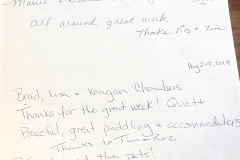 All around great week
Thanks Roz + Tim
Aug 2-9, 2019
Brad, Lisa + Keagan Chambers
Thanks for the great week! Quiet
Peaceful, great paddling + accommodations
Thanks to Tim + Roz
the pets!